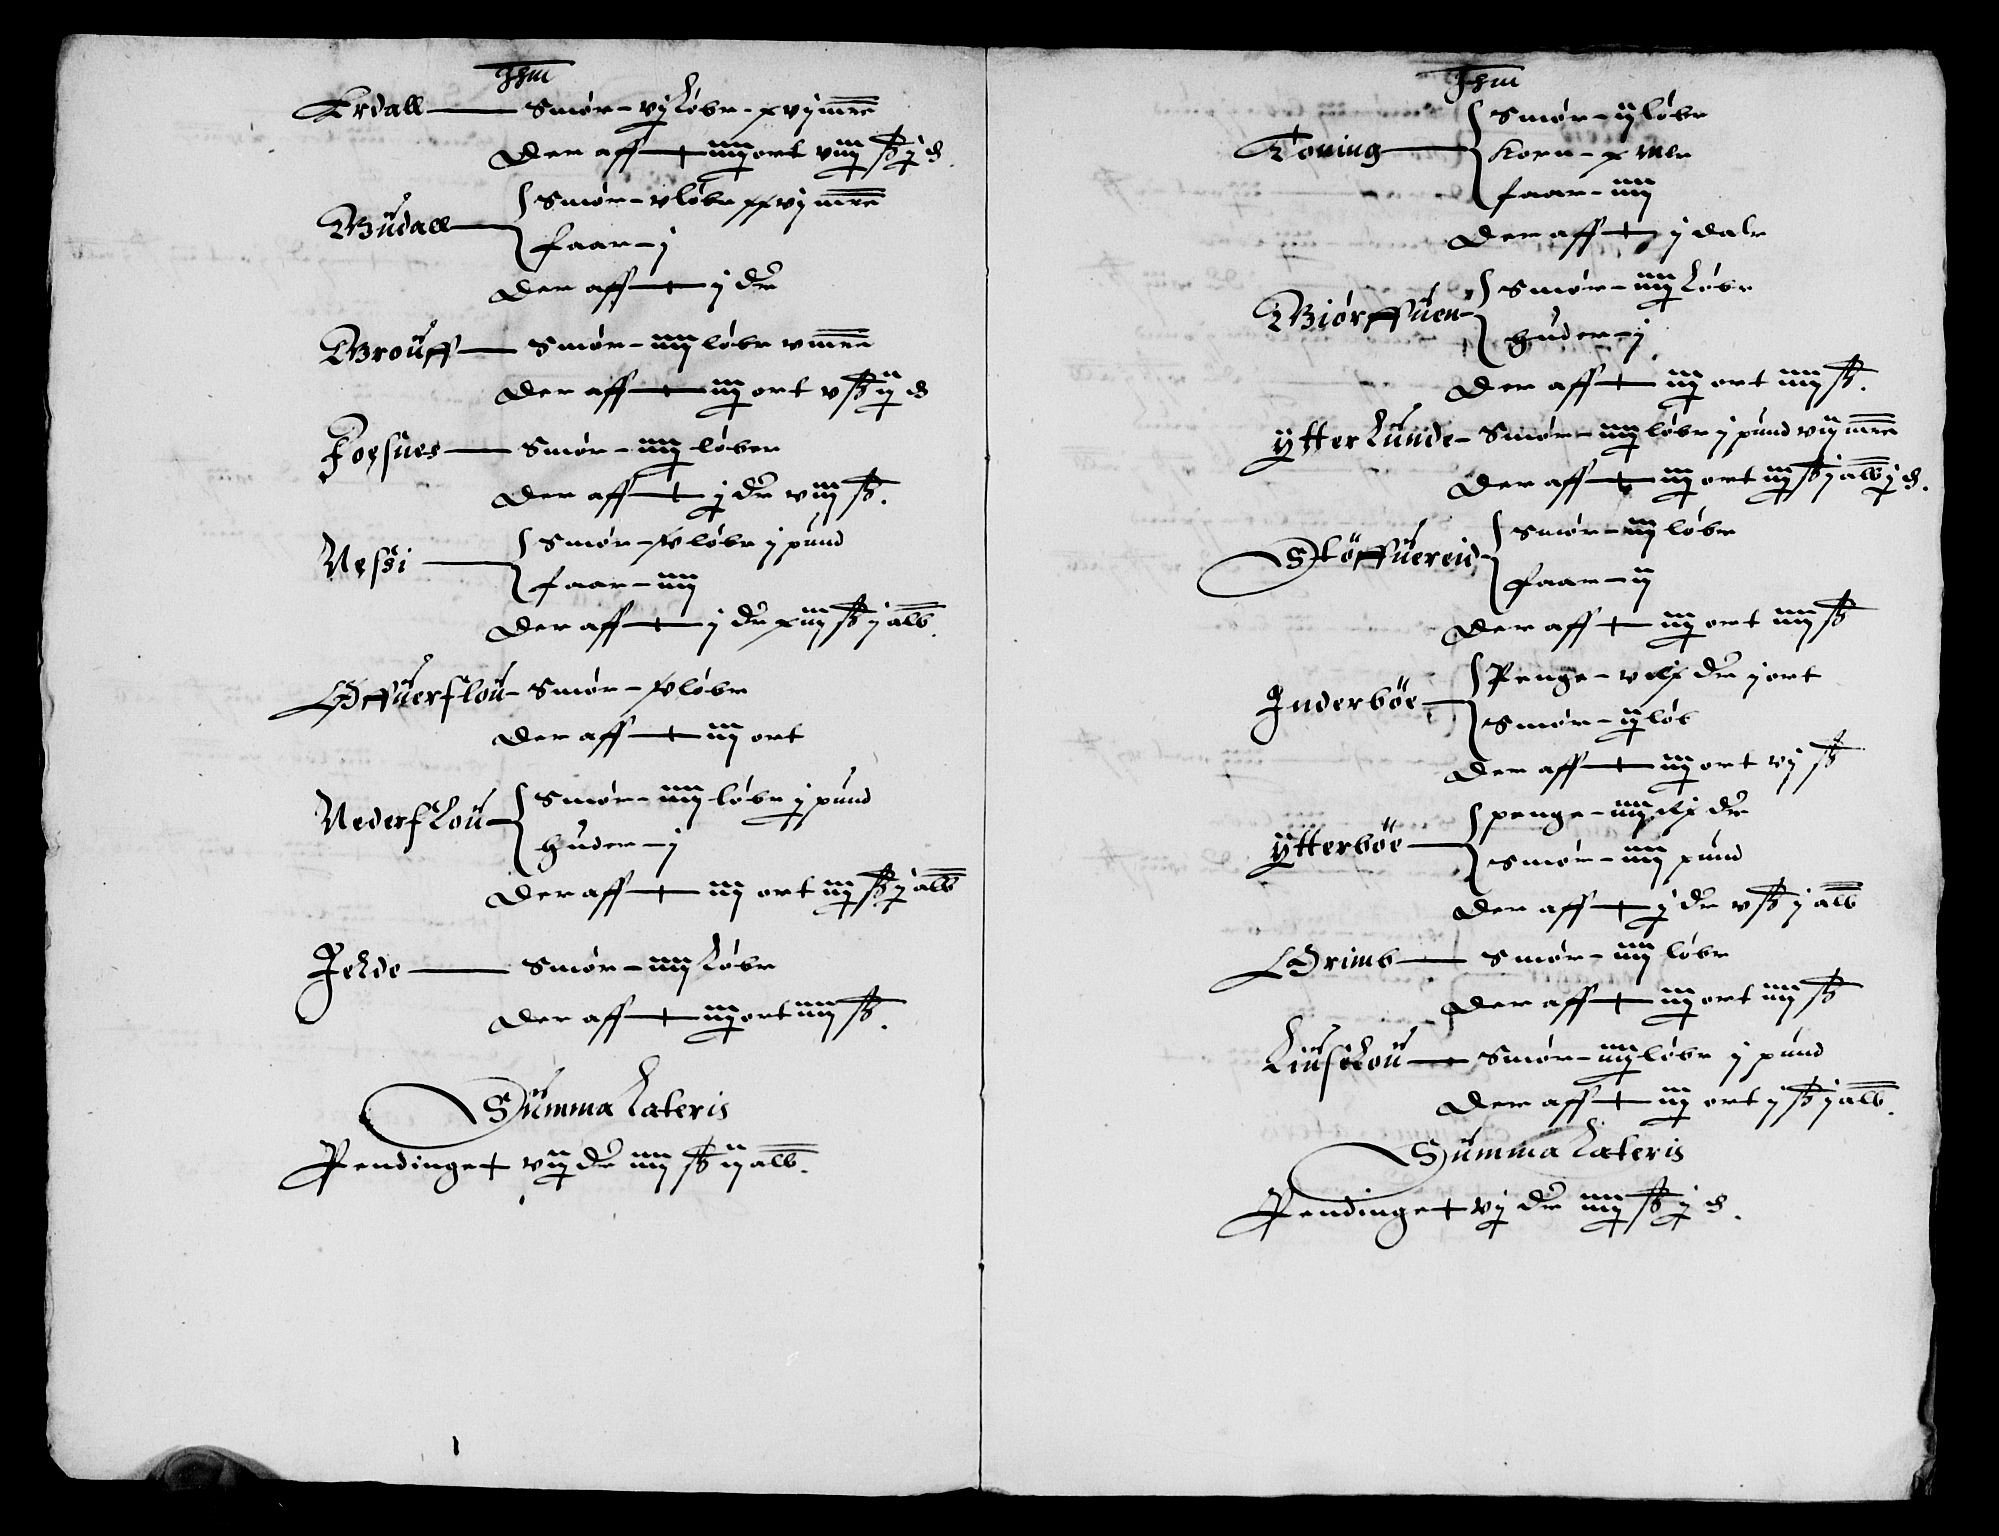 Jhm
Erdall — Smør – vj Løbe – xvj mrc
Der aff — iij ort viij ß j ₰.
Büdall — Smør – v løbe xxvj mrc
faar – j
Der aff — j dlr
Broüff — Smør – iiij løbe v mrc
Der aff — iij ort v ß ij ₰
Foeßnes — Smør – iiij løber
Der aff — j dlr viij ß.
Neßi — Smør – løbe j pund
faar – iiij
Der aff — j dlr xiij ß j alb.
Øffüerfloü – Smør – løbe
Der aff — iij ort
Nederfloü — Smør – iiij løbe j pund
Huder – j
Der aff — iij ort iij ß j alb
Jelde — Smør – iiij Løbe
Der aff — iij ort iiij ß.
Summa Lateris
Pendinge + viij dlr iiij ß ij alb.
Jhm
Toning — Smør – ij løbe
Korn – x mle
faar – iiij
Der aff — j dalr
Biørffüen – Smør – iiij Løbe
Huder – j
Der aff — iij ort iiij ß.
Ytter Lunde – Smør – iiij løbe j pund vij mrc
Der aff — iij ort iij ß j alb j ₰.
Støffüereid – Smør – iiij løbe
faar – ij
Der aff — iij ort iiij ß
Inderbøe — Penge – dlr j ort
Smør – ij løb
Der aff — iij ort vj ß
Ytterbøe — penge – dlr
Smør – iiij pund
Der aff — j dlr v ß j alb
Grimb — Smør – iiij løbe
Der aff — iij ort iiij ß
Liuseloü — Smør – iiij løbe j pund
Der aff — iij ort j ß j alb.
Summa Lateris
Pendinge + vj dlr iiij ß j ₰.